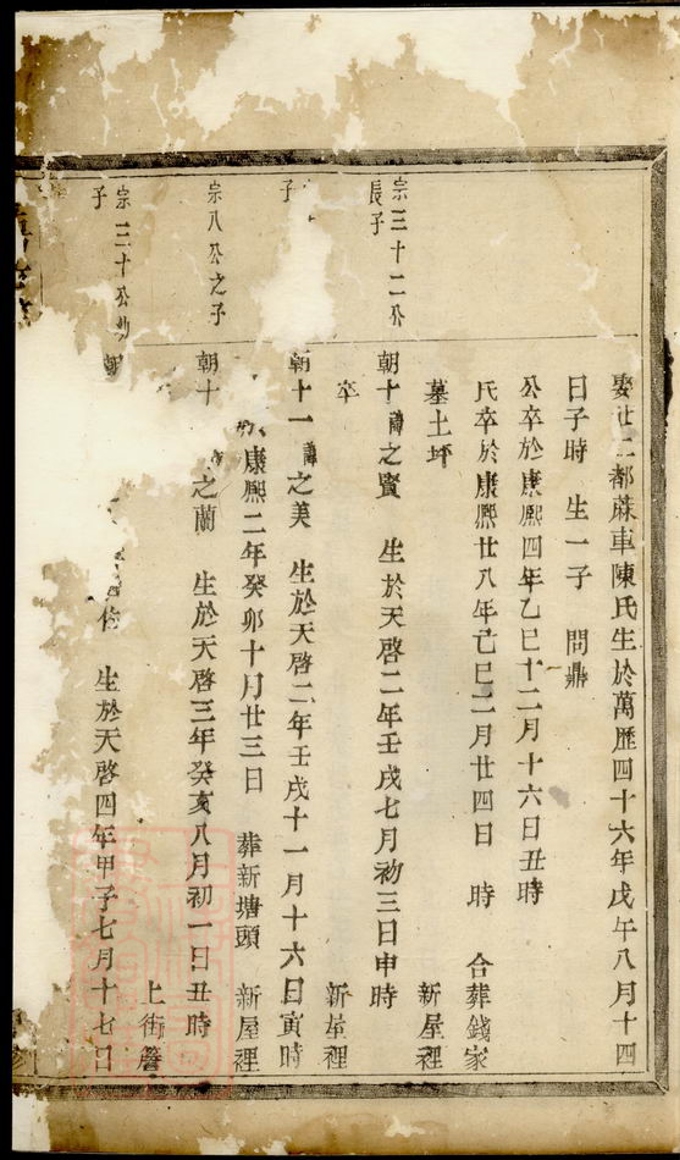 娶廿二都蔴車陳氏生於萬歷四十六年戊午八月十四
日子時 生一子 問鼎
公卒於康熙四年乙巳十二月十六日丑時
氏卒於康熙廿八年己巳二月廿四日 時 合葬錢家
墓土坪 新屋裡
宗三十二公
長子
朝十 諱之賓 生於天啓二年壬戌七月初三日申時
卒 新屋裡
子
朝十一 諱之美 生於天啓二年壬戌十一月十六日寅時
康熙二年癸卯十月廿三日 葬新塘頭 新屋裡
宗八公之子
朝十 之蘭 生於天啓三年癸亥八月初一日丑時
上街
宗三十公幼
子
朝 生於天啓四年甲子七月十七日